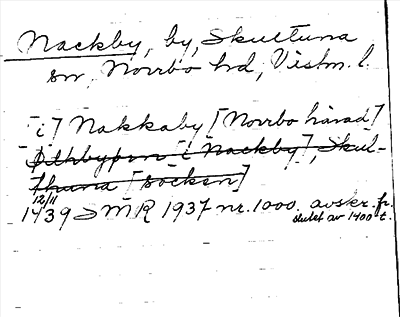 Nackby, by, Skultuna
sn, Norrbo hd, Västm. l.
[i] Nakkaby [Norrbo härad]
[i Nackby], Skul-
thuna [socken]
12/11
1439 SMR 1937 nr. 1000. avskr. fr.
slutet av 1400 t.